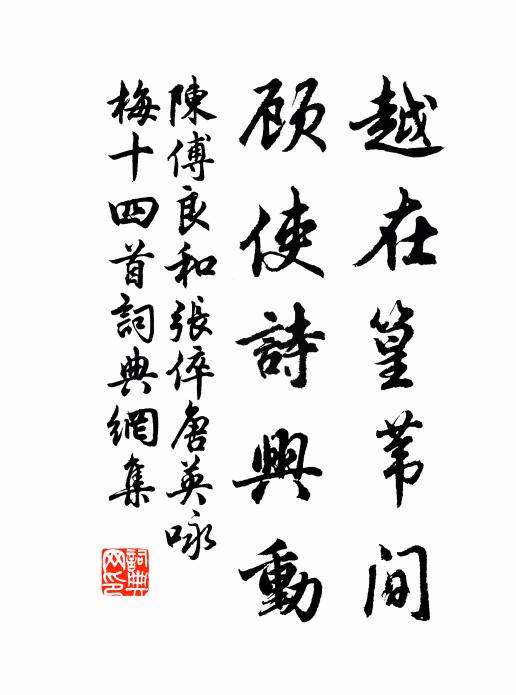 越在篁苇间
顾使詩興動
陳傅良和張倅唐英咏
梅十四首詞典網集
詞典网印